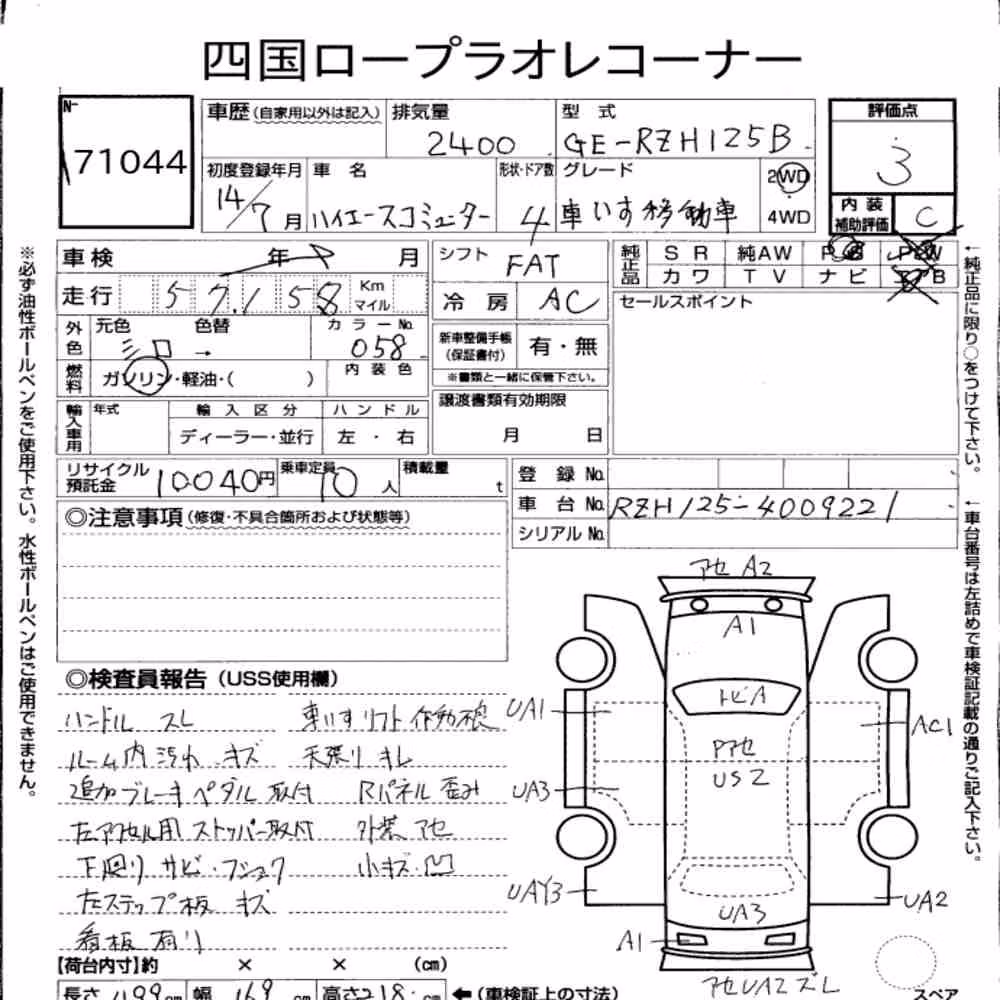 四国ロープラオレコーナー
N-
71044
車歴(自家用以外は記入) 排気量 型 式 評価点
2400 GE-RZH125B 3
初度登録年月 車 名 形状・ドア数 グレード 2WD
14/7月 ハイエースコミューター 4 車いす移動車 4WD
内 装 補助評価 C
車検 年 月
シフト FAT
純正品 S R 純AW P S P W
カ ワ T V ナ ビ B
走行 57,158 Km マイル
冷 房 AC
セールスポイント
外色 元色 色替 カラーNo.
シロ → 058
新車整備手帳 (保証書付) 有・無
燃料 ガソリン・軽油・( ) 内 装 色
※書類と一緒に保管下さい。
輸入車用 年式 輸 入 区 分 ハ ン ド ル
ディーラー・並行 左 ・ 右
譲渡書類有効期限
月 日
リサイクル預託金 10040円 乗車定員 10人 積載量 t
登 録 No.
車 台 No. RZH125-4009221
シリアル No.
◎注意事項(修復・不具合箇所および状態等)
◎検査員報告(USS使用欄)
ハンドル スレ 車いすリフト 作動不良
ルーム内 汚れ キズ 天張り キレ
追加ブレーキペダル 取付 Rパネル 歪み
左アクセル用 ストッパー取付 外装 アセ
下回り サビ・フショク 小キズ・凹
左ステップ板 キズ
看板 有り
【荷台内寸】約 × × (cm)
長さ 499 cm 幅 169 cm 高さ 218 cm ←(車検証上の寸法)
アセ A2
A1
トビA
UA1
AC1
Pアセ
US2
UA3
UAY3
UA2
UA3
A1
アセUA2ズレ
スペア
※必ず油性ボールペンをご使用下さい。水性ボールペンはご使用できません。
←純正品に限り○をつけて下さい。
←車台番号は左詰めで車検証記載の通りご記入下さい。